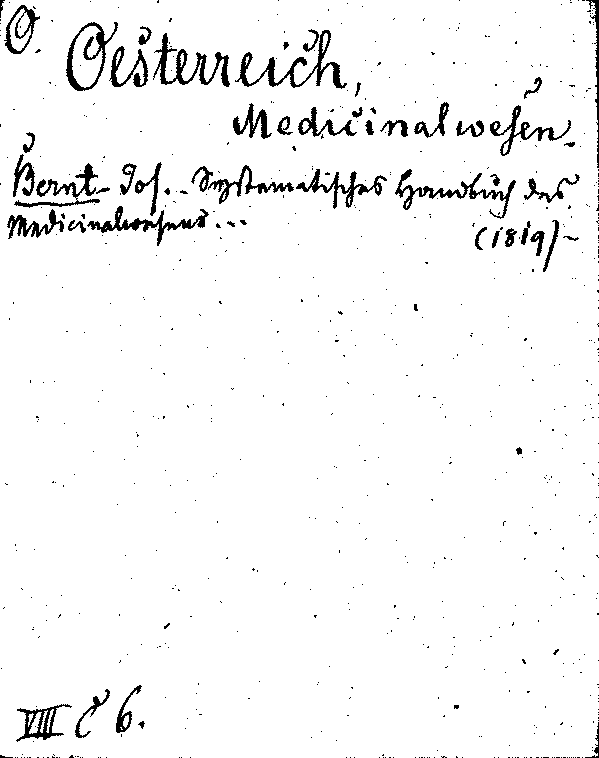 O.
Oesterreich,
Medicinalwesen.
Bernt Jos. - Systematisches Handbuch des
Medicinalwesens...
(1819) -
VIII C 6.